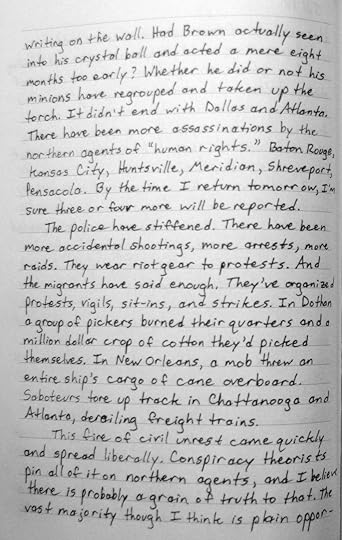 writing on the wall. Had Brown actually seen
into his crystal ball and acted a mere eight
months too early? Whether he did or not his
minions have regrouped and taken up the
torch. It didn't end with Dallas and Atlanta.
There have been more assassinations by the
northern agents of "human rights." Baton Rouge,
Kansas City, Huntsville, Meridian, Shreveport,
Pensacola. By the time I return tomorrow, I'm
sure three or four more will be reported.
The police have stiffened. There have been
more accidental shootings, more arrests, more
raids. They wear riot gear to protests. And
the migrants have said enough. They've organized
protests, vigils, sit-ins, and strikes. In Dothan
a group of pickers burned their quarters and a
million dollar crop of cotton they'd picked
themselves. In New Orleans, a mob threw an
entire ship's cargo of cane overboard.
Saboteurs tore up track in Chattanooga and
Atlanta, derailing freight trains.
This fire of civil unrest came quickly
and spread liberally. Conspiracy theorists
pin all of it on northern agents, and I believe
there is probably a grain of truth to that. The
vast majority though I think is plain oppor-